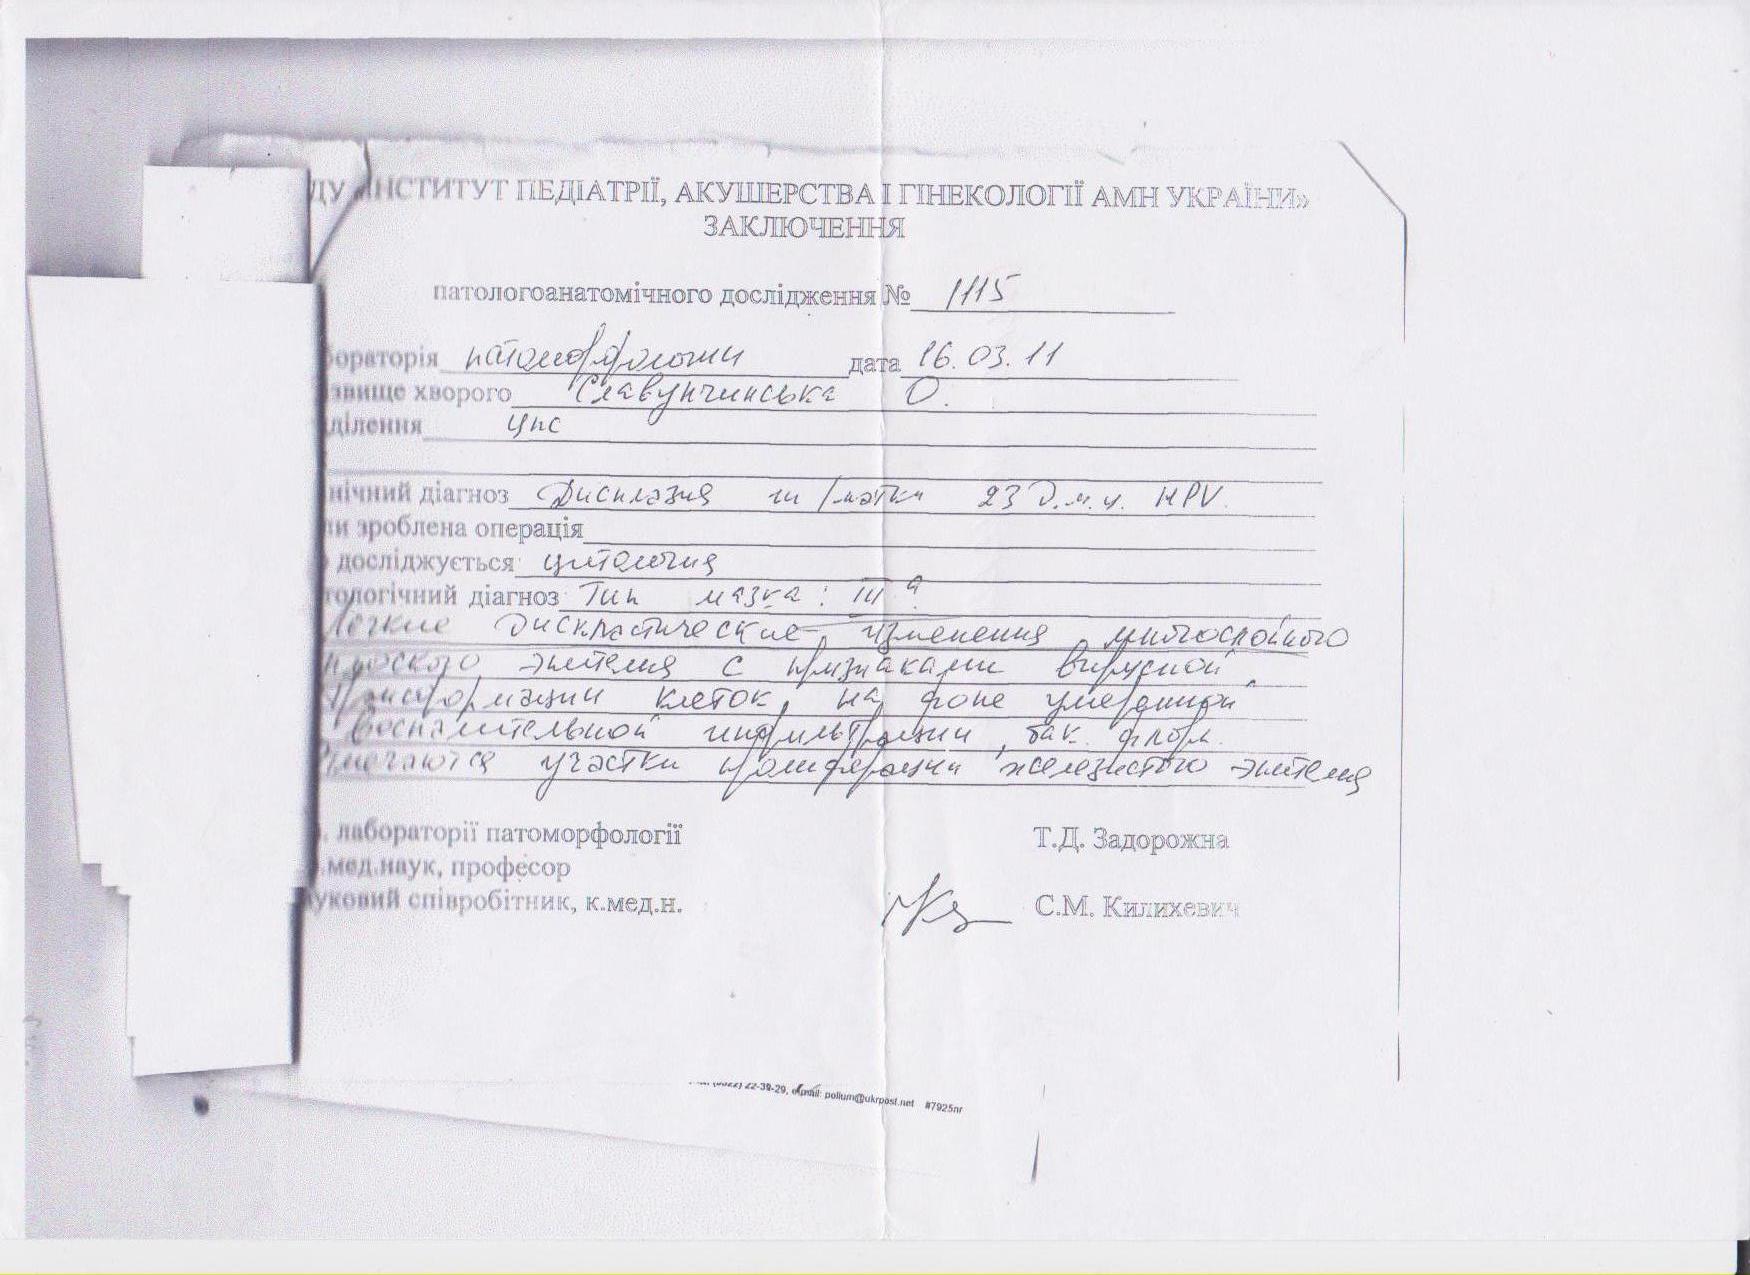 ДУ «ІНСТИТУТ ПЕДІАТРІЇ, АКУШЕРСТВА І ГІНЕКОЛОГІЇ АМН УКРАЇНИ»
ЗАКЛЮЧЕННЯ
патологоанатомічного дослідження № 1115
бораторія патоморфологии дата 16.03.11
звище хворого Славунчинська О.
ділення цпс
нічний діагноз Дисплазия ш/матки 23 д.м.ц. HPV.
ли зроблена операція
досліджується цитология
тологічний діагноз Тип мазка: III а
Легкие дискластические изменения многослойного
плоского эпителия с признаками вирусной
трансформации клеток, на фоне умеренной
воспалительной инфильтрации, бак. флоры.
Отмечаются участки пролиферации железистого эпителия
. лабораторії патоморфології Т.Д. Задорожна
.мед.наук, професор
уковий співробітник, к.мед.н. С.М. Килихевич
22-39-29, e-mail: polium@ukrpost.net #7925nr